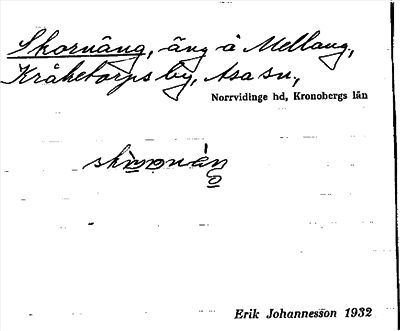 Skornäng, äng å Mellang,
Kråketorps by, Asa sn,
Norrvidinge hd, Kronobergs län
Erik Johannesson 1932